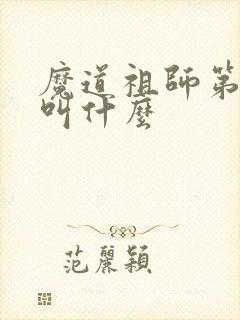 魔道祖師第
叫什麼
范麗穎